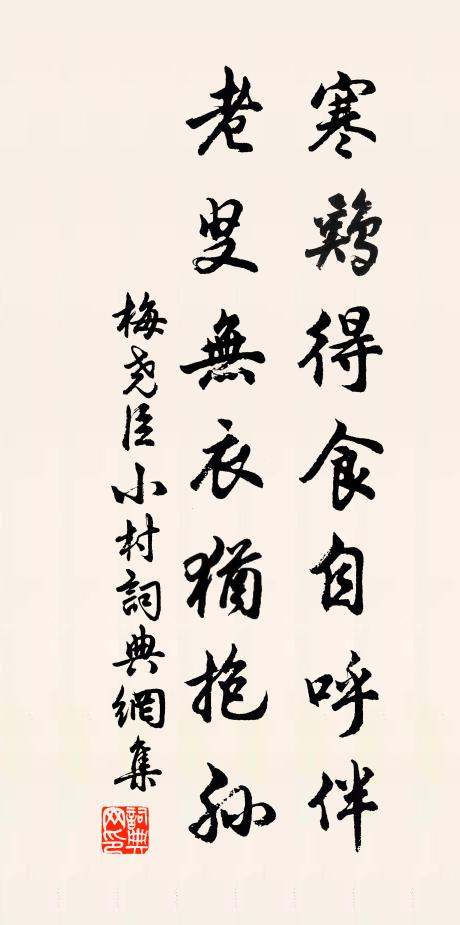 寒鷄得食自呼伴
老叟無衣猶抱孫
梅堯臣小村詞典網集
詞典網印